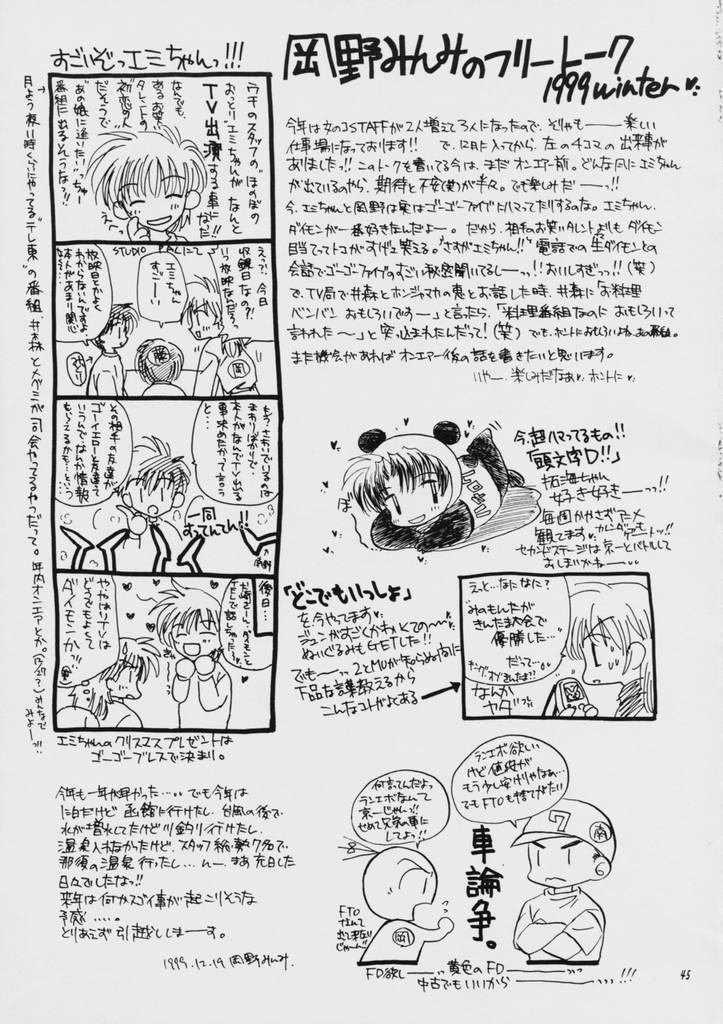 岡野みんみのフリートーク
1999 winter
すごいぞっエミちゃんっ!!!
今年は女のコSTAFFが2人増えて3人になったので、そりゃもーーー楽しい
仕事場になっております!! で、12月に入ってから、左の4コマの出来事が
ありました!! このトークを書いてる今は、まだオンエアー前。どんな風にエミちゃん
が出ているのやら、期待と不安(?)が半々。でも楽しみだーーっ!!
今、エミちゃんと岡野は実はゴーゴーファイブにハマってたりするのな。エミちゃん、
ダイモンが一番好きなんだよー。だから、相手のお笑いタレントよりもダイモン
目当てってトコがすげー笑える。「さすがエミちゃん!!」電話での生ダイモンとの
会話でゴーゴーファイブのすごい秘密聞いてるしーっっ!!おいしすぎっっ!!(笑)
で、TV局で井森とホンジャマカの恵とお話した時、井森に「お料理
バンバン おもしろいですー」と言ったら、「料理番組なのに おもしろいって
言われた〜」と突っ込まれたんだって!(笑) でも、ホントにおもしろいよね、あの番組。
また機会があればオンエアー後の話を書きたいと思います。
いやー、楽しみだなぁ ホントに
ウチのスタッフの“ほのぼの
おっとり”エミちゃんが なんと
TV出演する事に
なだ!!
なんでも、
あるお笑い
タレントの
初恋の人
だそうで
“あの娘に逢いたい”っちゅー
番組に出るそうなっ!!
えへっ
STUDIO
えっ?、今日
収録日なの?!
いつ放映なんだろっ
エミちゃん
すごーい
放映日とかよく
わからないんですよ
本人があまり関心
もう、さわいでいるのは
まわりばかりで、
本人がなんでTV出る
事決めたかって言う
と…
その相手の友達が
ゴーイエローと友達って
いうんでなんか情報
もらえるかも…という
一同
すってんてん!!
後日…
大崎さーん、ダイモンと
TELで話しちゃったっっ
やっぱりTVは
どうでもよくて
ダイモンかっ!!
エミちゃんのクリスマスプレゼントは
ゴーゴーブレスで決まり。
月よう夜11時くらいにやってる“テレ東”の番組、井森とメグミが司会やってるやつだって。年内オンエアとか。(多分?)みんなで
みよーっ!!
今、超ハマってるもの!!
「頭文字D!!」
拓海ちゃん
好き好きーーっ!!
毎週かかさずアニメ
観てます
カレンダーもゲーットッ!!
セカンドステージは京一とバトルして
おしまいかねー
「どこでもいっしょ」
を、今やってます
ジュンがすごくかわいくての〜
ぬいぐるみもGETした!!
でもーーっっ2×MUが知らぬ内に
下品な言葉教えるから
こんなコトがよくある
えっと…なになに?
みのもんたが
きんたま大会で
優勝した…
だって…
なんか
ヤダ
今年も一年が早かった‥‥‥でも今年は
1泊だけど函館に行けたし、台風の後で
水が増水してたけど川釣り行けたし、
温泉入れなかったけど、スタッフ総勢7名で
那須の温泉行ったし…んー、まぁ充日した
日々でしたなっ!!
来年は何かスゴイ事が起こりそうな
予感‥‥。
とりあえず引越ししまーす。
1999.12.19 岡野みんみ.
ランエボ欲しい
けど値段が
もう少し安けりゃなぁ…
でもFTOも捨てがたい
何言ってんだよっ
ランエボなんて
京一じゃんっ!!
せめて兄弟の車に
してよっ!!
車論争。
FTO
なんて
出て来ない
じゃーん!!
岡
南
FD欲しーーー黄色のFDーーー
中古でもいいからーーー!!!
45